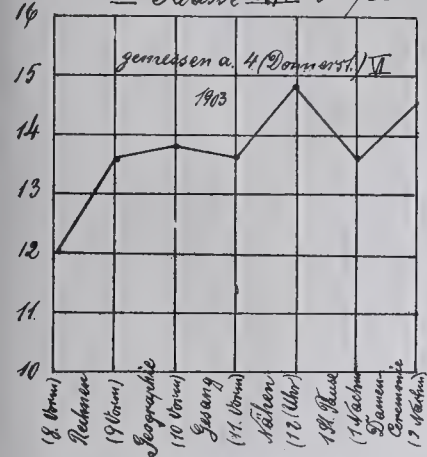 16
gemessen a. 4 (Donnerst.) VI
1903
15
14
13
12
11.
10
(8. Vorm)
Rechnen
(9 Vorm)
Geographie
(10 Vorm)
Gesang
(11. Vorm)
Nähen
(12 (Uhr)
1 St. Pause
(1 Nachm
Damen-
Ceremonie
(2 Nachm)